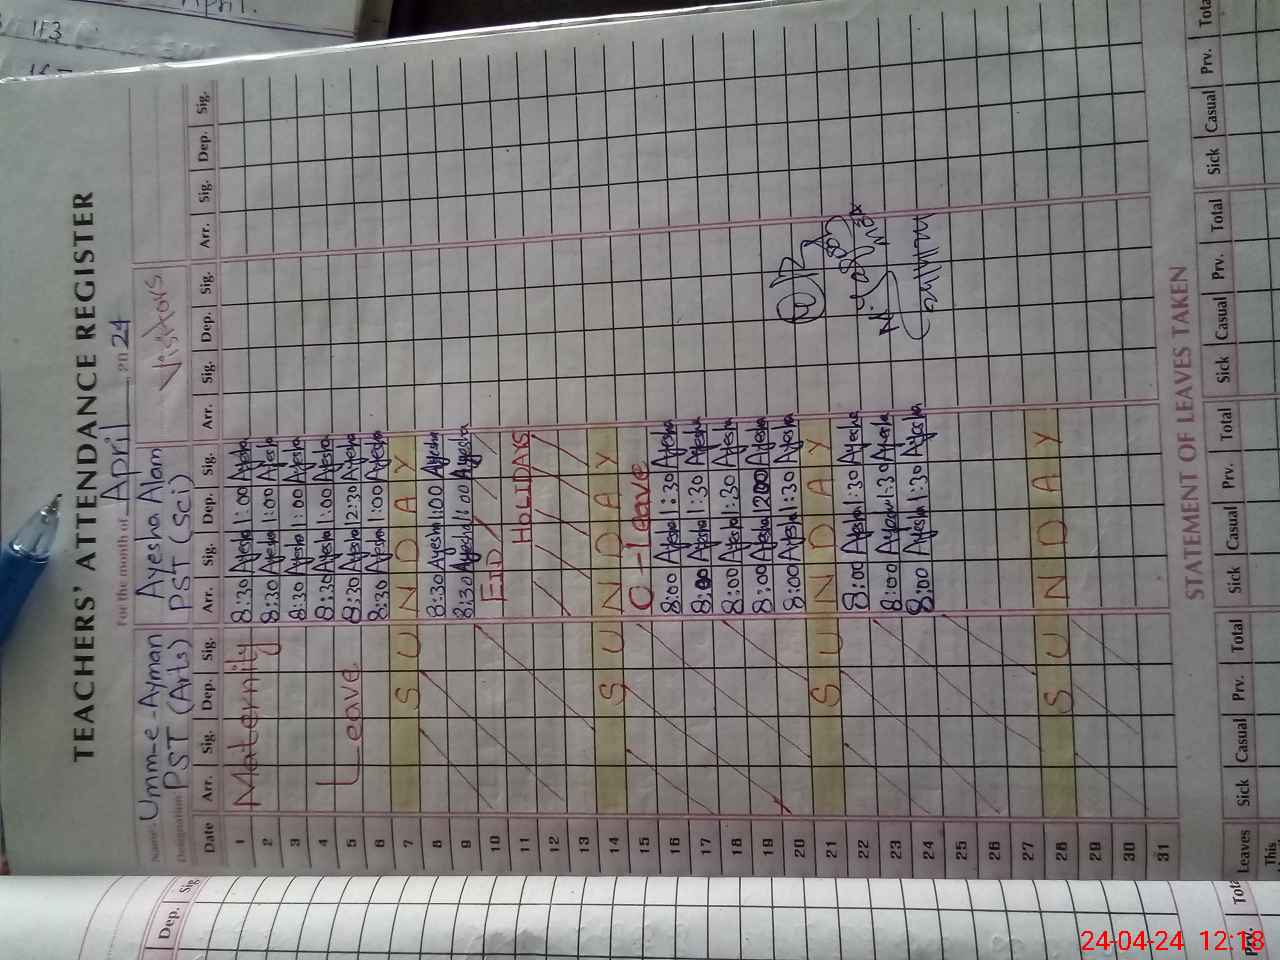 April.
TEACHERS' ATTENDANCE REGISTER
For the month of April 2024
Name: Umm-e-Ayman Ayesha Alam Visitors
Designation PST (Arts) PST (Sci)
Date Arr. Sig. Dep. Sig. Arr. Sig. Dep. Sig. Arr. Sig. Dep. Sig. Arr. Sig. Dep. Sig.
1 Maternity 8:30 Ayesha 1:00 Ayesha
2 8:30 Ayesha 1:00 Ayesha
3 8:30 Ayesha 1:00 Ayesha
4 8:30 Ayesha 1:00 Ayesha
5 Leave 8:30 Ayesha 12:30 Ayesha
6 8:30 Ayesha 1:00 Ayesha
7 SUNDAY
8 8:30 Ayesha 1:00 Ayesha
9 8:30 Ayesha 1:00 Ayesha
10 EID
11 HOLIDAYS
12
13
14 SUNDAY
15 C-leave
16 8:00 Ayesha 1:30 Ayesha
17 8:00 Ayesha 1:30 Ayesha
18 8:00 Ayesha 1:30 Ayesha
19 8:00 Ayesha 1200 Ayesha
20 8:00 Ayesha 1:30 Ayesha
21 SUNDAY
22 8:00 Ayesha 1:30 Ayesha
23 8:00 Ayesha 1:30 Ayesha
24 8:00 Ayesha 1:30 Ayesha
25
26
27
28 SUNDAY
29
30
31
STATEMENT OF LEAVES TAKEN
Leaves Sick Casual Prv. Total Sick Casual Prv. Total Sick Casual Prv. Total Sick Casual Prv. Total
This
Dep. Sig.
Prv. Total
24-04-24 12:18